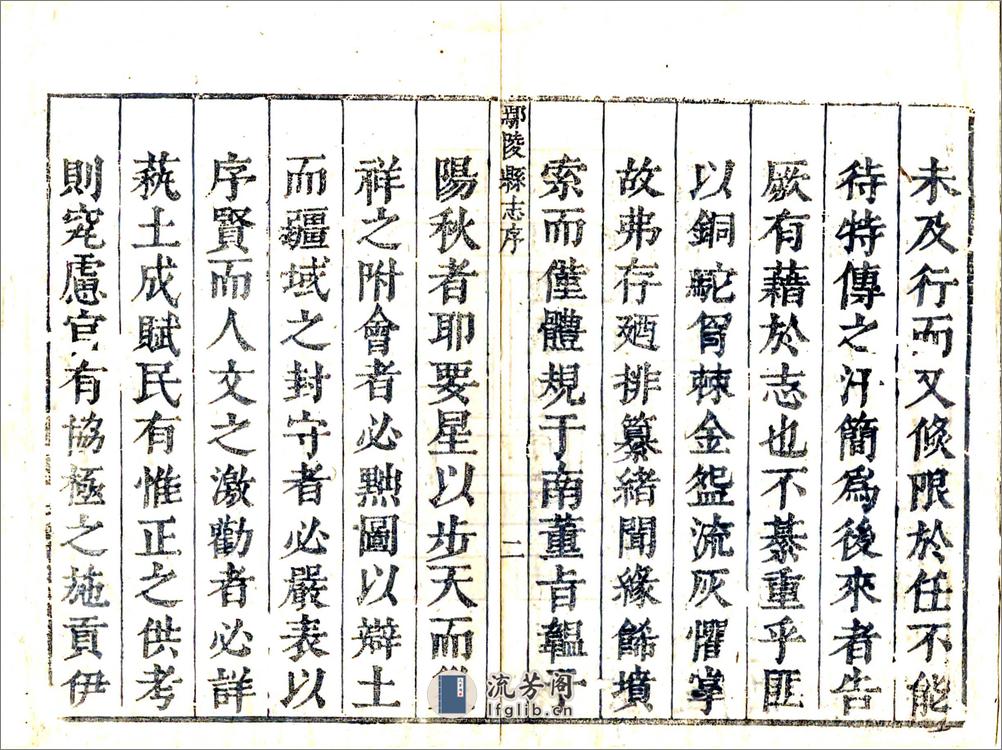 未及行而又倐限於任不能
待特傳之汗簡爲後來者告
厥有藉於志也不綦重乎匪
以銅駝罥棘金盌流灰懼掌
故弗存廼排纂緒聞緣餙墳
索而僅體規于南董㫖韞
鄢陵縣志序
二
陽秋者耶要星以步天而
祥之附會者必黜圖以辯土
而疆域之封守者必嚴表以
序賢而人文之激勸者必詳
蓺土成賦民有惟正之供考
則究慮官有協極之施貢伊
流芳阁
lfglib.cn